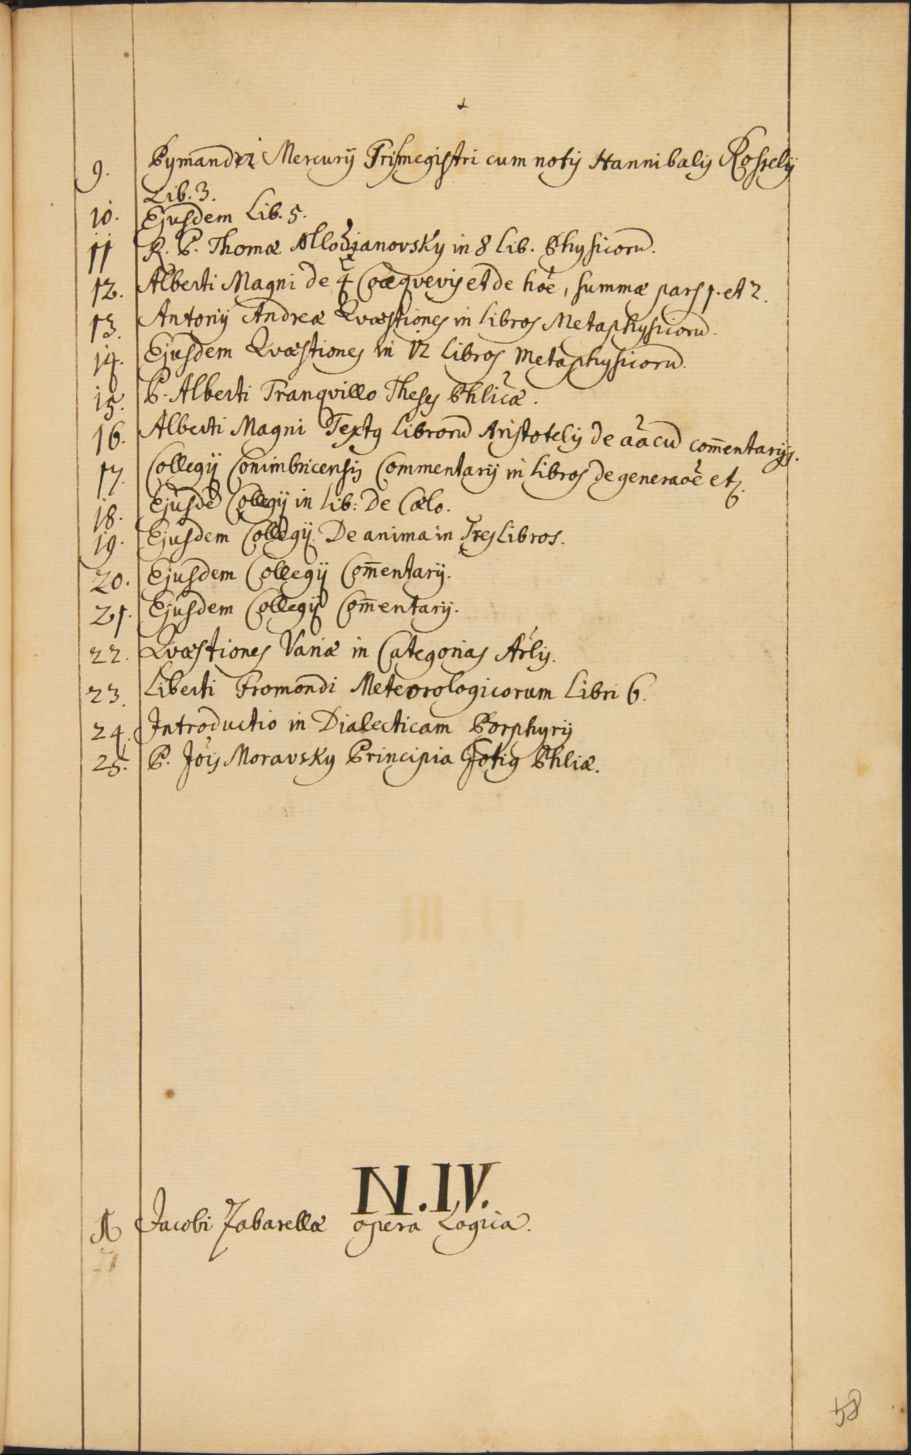 9. Pymandri Mercurij Trismegistri cum notis Hannibalis Rosselij
Lib. 3.
10. Ejusdem Lib. 5.
11 R. P. Thomæ Młodzianovsky in 8 Lib. Physicorũ.
12. Alberti Magni de 4 Coæqvevis et de hõe, summæ pars 1. et 2.
13. Antonij Andreæ Qvæstiones in libros Metaphysicorũ.
14. Ejusdem Qvæstiones in 12 Libros Metaphysicorũ.
15. P. Alberti Tranqvillo Theses Phlicæ.
16. Alberti Magni Textq Librorũ Aristotelis De aãcũ com̃entarijs.
17. Collegij Conimbricensis Commentarij in Libros de generaõe etc.
18. Ejusdẽ Collegij in Lib: De Cælo.
19. Ejusdem Collegij De anima in Tres Libros.
20. Ejusdem Collegij Com̃entarij.
21. Ejusdem Collegij Com̃entarij.
22. Qvæstiones Variæ in Categorias Arlis.
23. Liberti Fromondi Meteorologicorum Libri 6.
24. Introductio in Dialecticam Porphyrij
25. P. Jõis Moravsky Principia totiq Phliæ.
N.IV.
Jacobi Zabarellæ opera Logica.
58